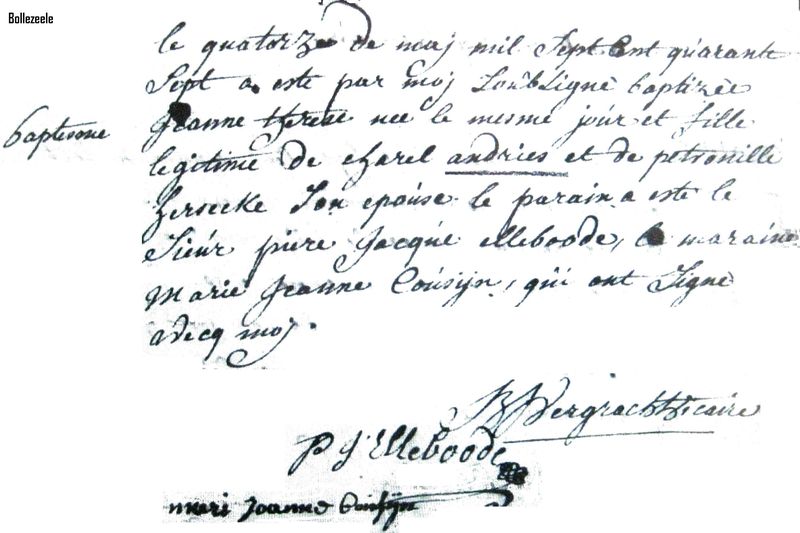 Bollezeele
le quatorze de maj mil Sept Cent quarante
Sept a este par moj Soubsigné baptizée
baptesme
Jeanne therese nee le mesme jour et fille
legitime de charel andries et de petronille
Son epouse le parain a este le
Sieur piere Jacque elleboode, la maraine
Marie Jeanne Cousijn, qui ont Signé
avecq moj.
Vergracht Vicaire
P J Elleboode
mari Joanne Cousijn